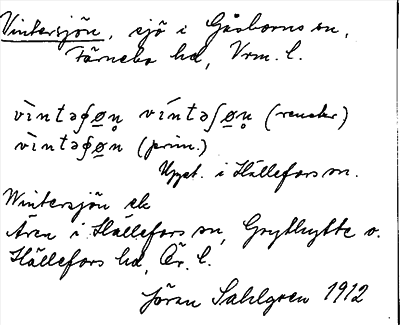 Vintersjön, sjö i Gåsborns sn,
Färnebo hd, Vrm. l.
vìntəʂø̱n̥ víntəʃø̱n̥ (rensker)
vìntəʂø̱n (prim.)
Uppt. i Hällefors sn.
Wintersjön ek
Åren i Hällefors sn, Grythytte o.
Hällefors hd, Ör. l.
Jöran Sahlgren 1912